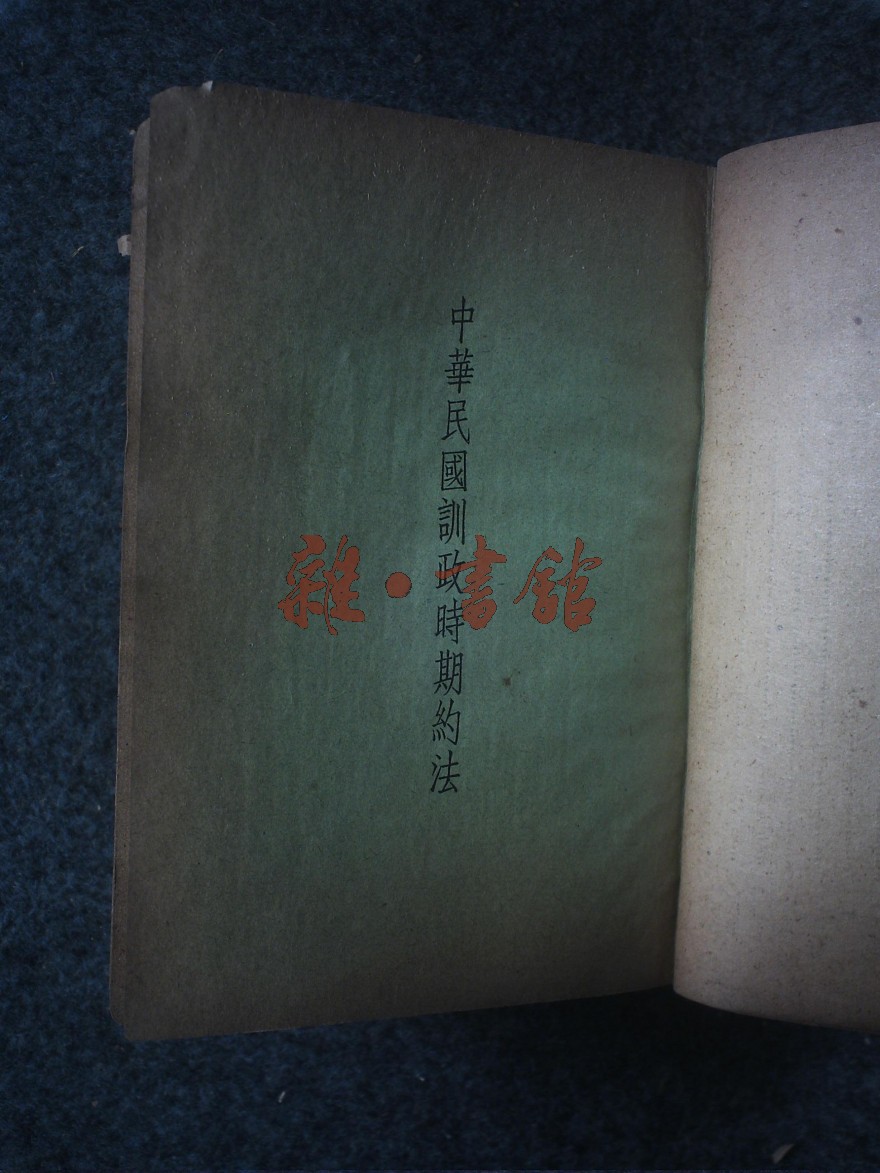 中華民國訓政時期約法
雜·書館